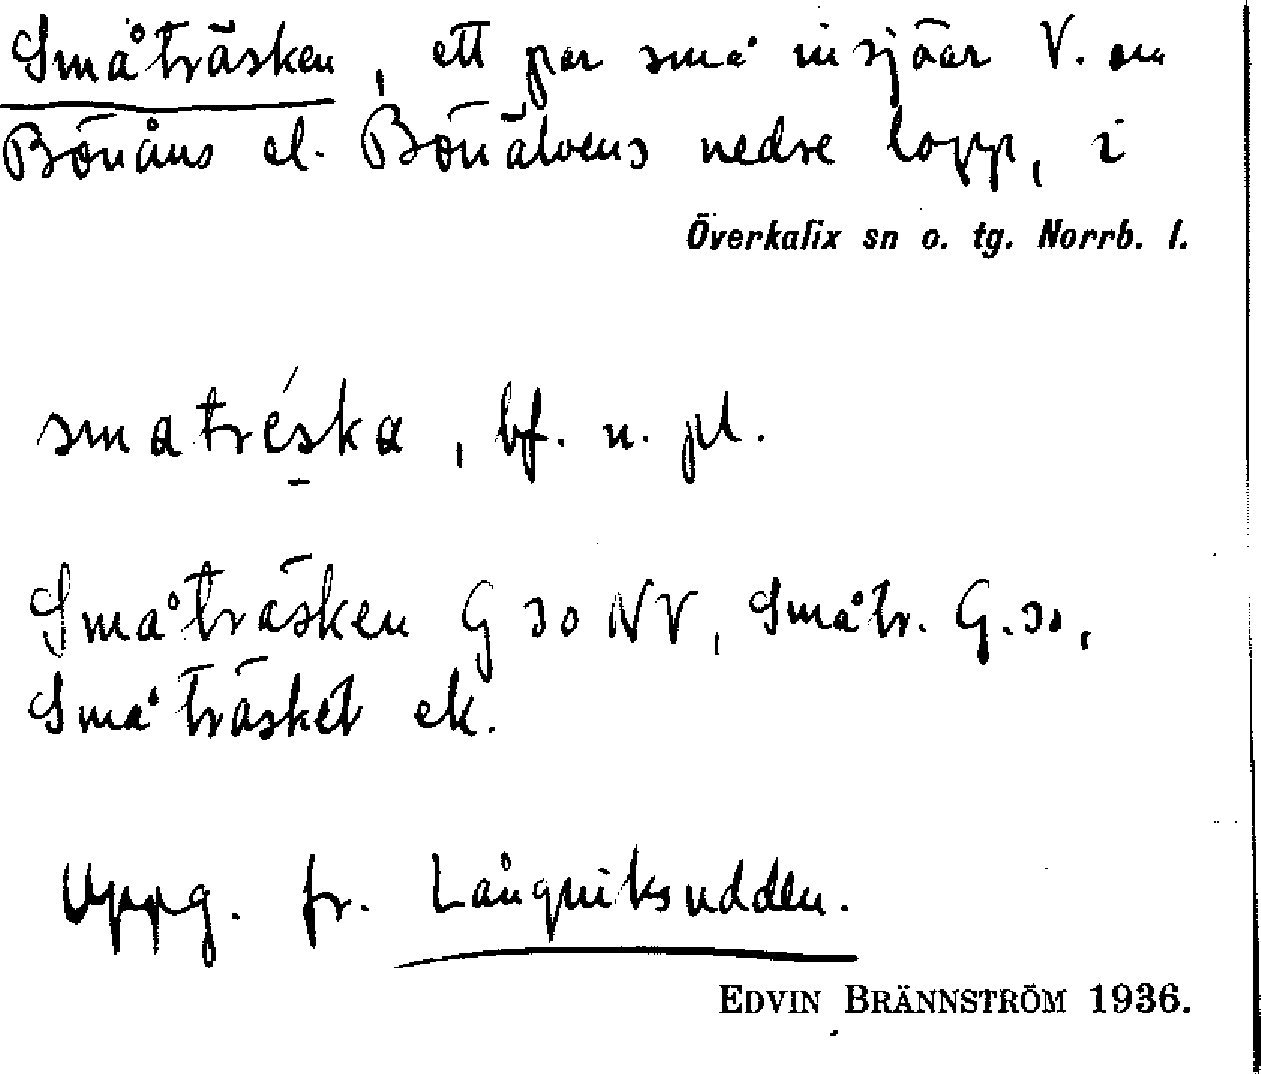 Småträsken, ett par små insjöar V. om
Bönåns el. Bönälvens nedre lopp, i
Överkalix sn o. tg. Norrb. l.
smatréska, bf. n. pl.
Småträsken G 30 NV, Småtr. G. 30,
Småträsket ek.
Uppg. fr. Långviksudden.
EDVIN BRÄNNSTRÖM 1936.